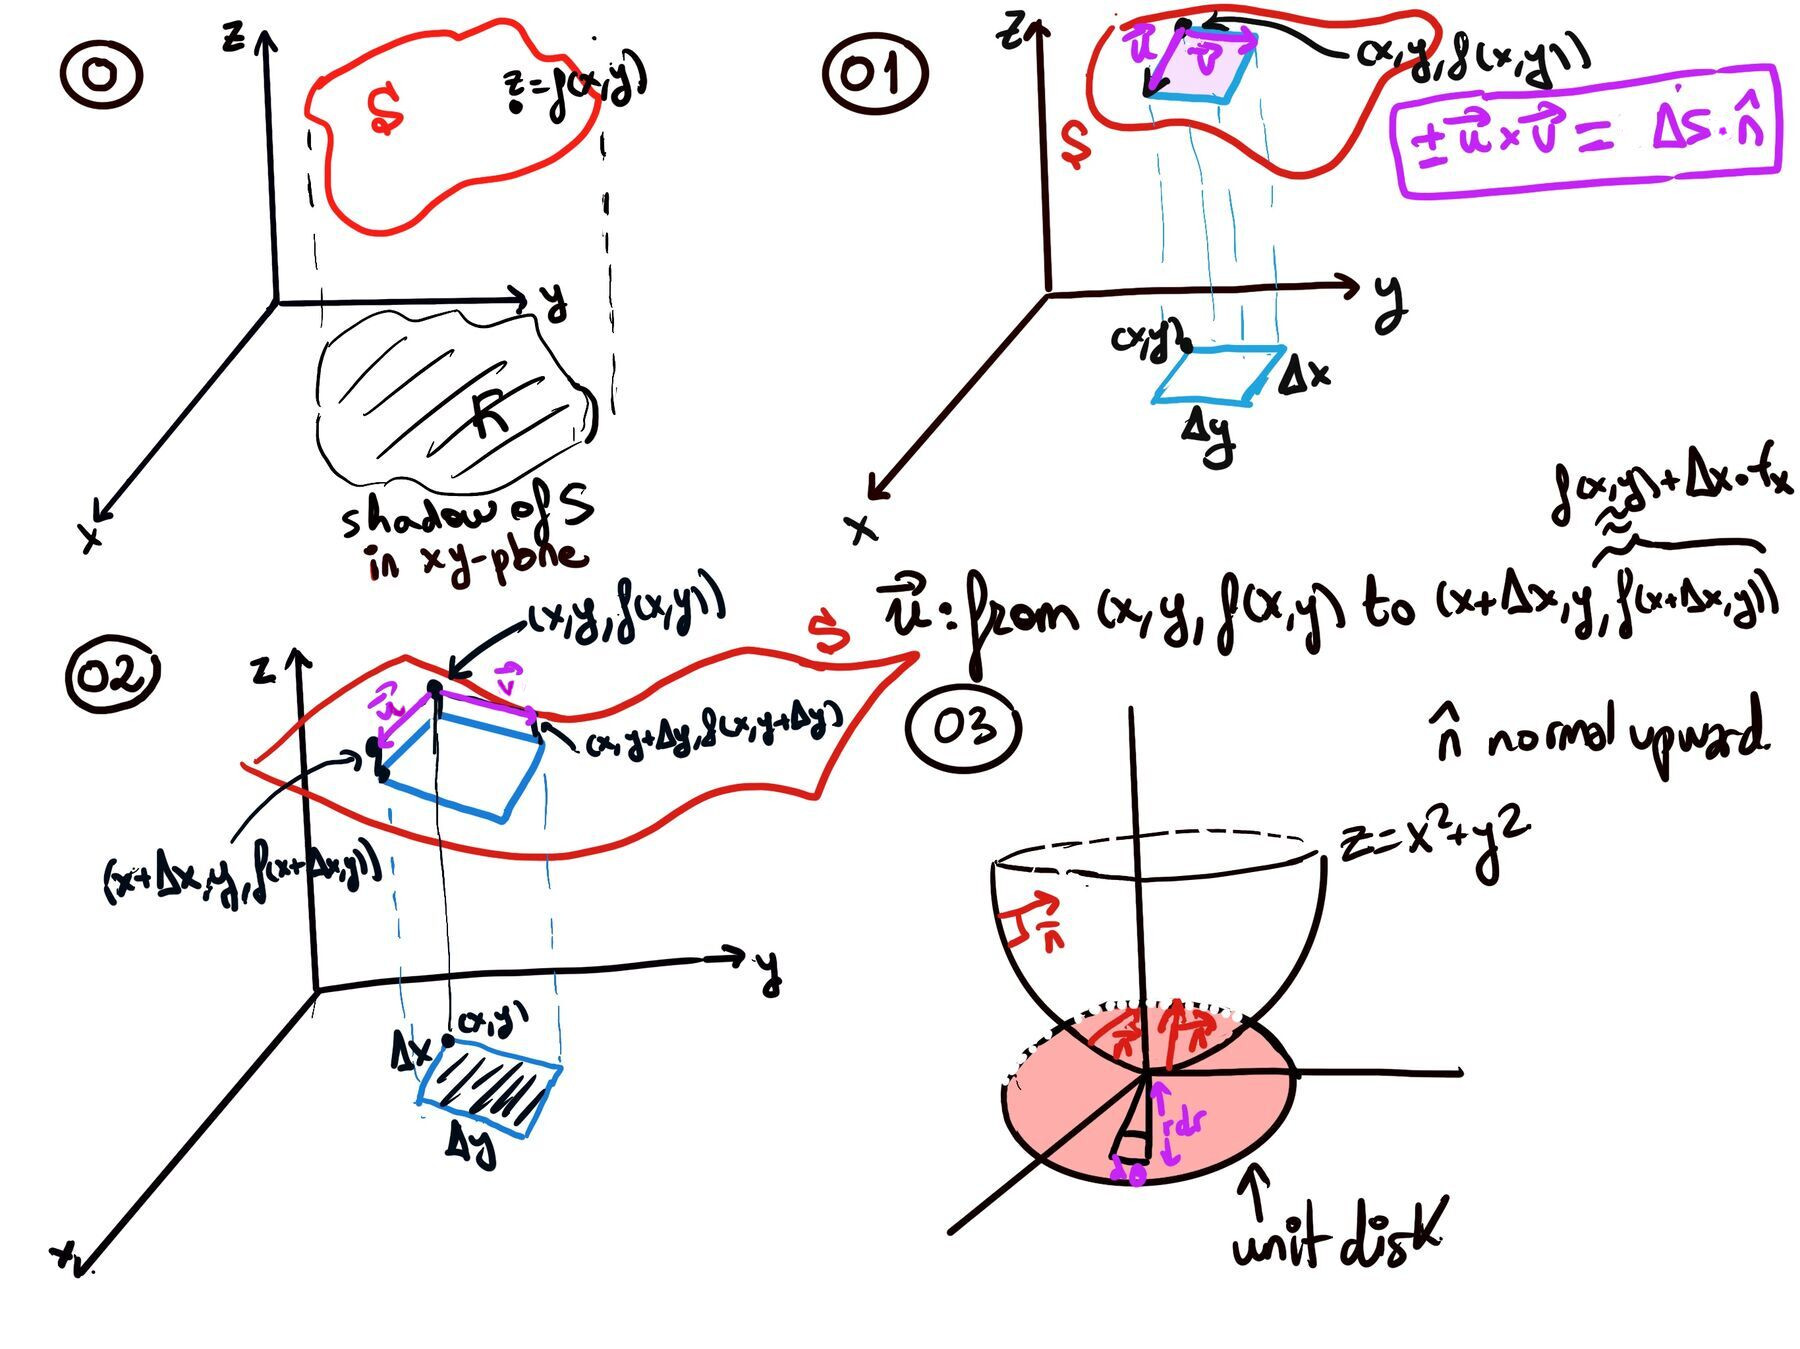 0
z
S
z=f(x,y)
y
R
x
shadow of S
in xy-plane
01
z
u⃗
v⃗
(x,y,f(x,y))
S
±u⃗×v⃗ = ΔS·n̂
y
(x,y)
Δx
Δy
x
f(x,y)+Δx·fx
≈
u⃗: from (x,y,f(x,y) to (x+Δx,y,f(x+Δx,y))
02
z
(x,y,f(x,y))
S
u⃗
v⃗
(x,y+Δy,f(x,y+Δy)
(x+Δx,y,f(x+Δx,y))
y
(x,y)
Δx
Δy
x
03
n̂ normal upward.
z=x²+y2
n⃗
n⃗
n⃗
rdr
dθ
unit disk